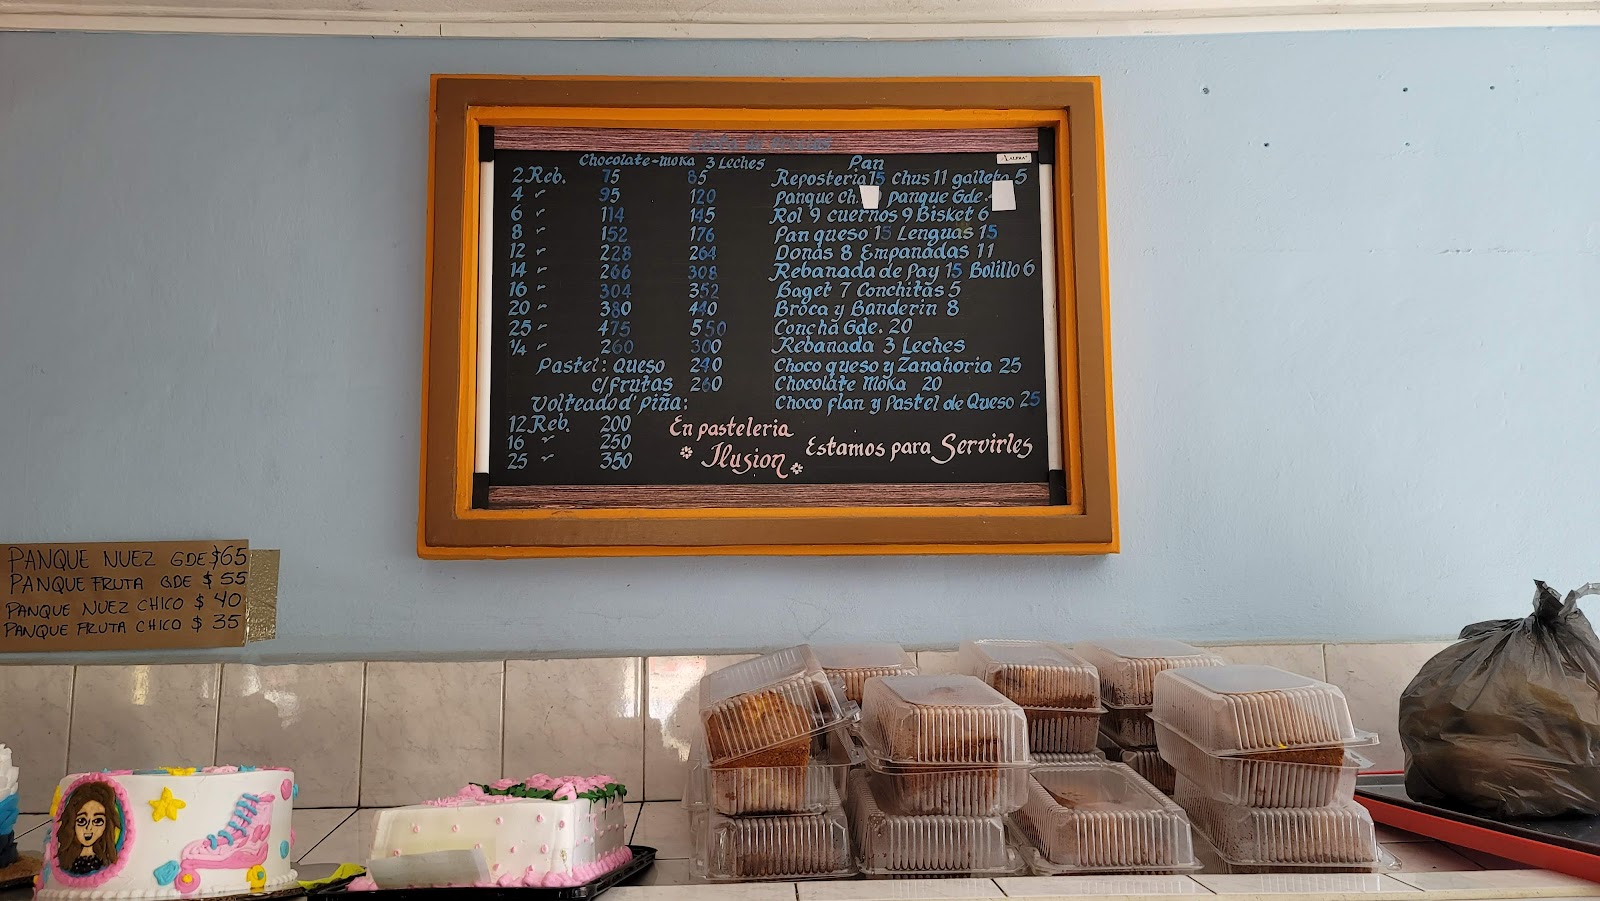 Chocolate-Moka 3 Leches
2 Reb. 75 85
4 " 95 120
6 " 114 145
8 " 152 176
12 " 228 264
14 " 266 308
16 " 304 352
20 " 380 440
25 " 475 550
1/4 " 260 300
Pastel: Queso 240
c/frutas 260
Volteado d' Piña:
12 Reb. 200
16 " 250
25 " 350
Pan
Reposteria 15 Chus 11 galleta 5
panque ch. panque Gde.
Rol 9 cuernos 9 Bisket 6
Pan queso 15 Lenguas 15
Donas 8 Empanadas 11
Rebanada de Pay 15 Bolillo 6
Baget 7 Conchitas 5
Broca y Banderin 8
Concha Gde. 20
Rebanada 3 Leches
Choco queso y Zanahoria 25
Chocolate Moka 20
Choco flan y Pastel de Queso 25
En pasteleria
Ilusion
Estamos para Servirles
ALFRA
PANQUE NUEZ GDE $65
PANQUE FRUTA GDE $ 55
PANQUE NUEZ CHICO $ 40
PANQUE FRUTA CHICO $ 35